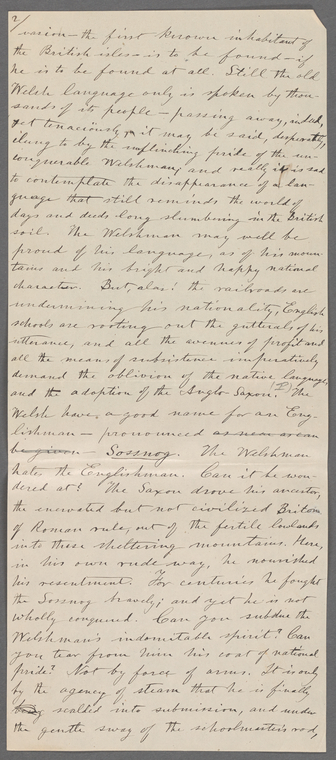 2/
vasion — the first known inhabitant of
the British isles — is to be found — if
he is to be found at all. Still the old
Welsh language only is spoken by thou-
sands of its people — passing away, indeed,
yet tenaciously, it may be said, desperately,
clung to by the unflinching pride of the un-
conquerable Welshman, and really it is sad
to contemplate the disappearance of a lan-
guage that still reminds the world of
days and deeds long slumbering in the British
soil. The Welshman may well be
proud of his language, as of his moun-
tains and his bright and happy national
character. But alas! the railroads are
undermining his nationality, English
schools are rooting out the gutterals of his
utterance, and all the avenues of profit and
all the means of subsistence imperatively
demand the oblivion of the native language,
and the adoption of the Anglo Saxon. The
Welsh have a good name for an Eng-
lishman — pronounced as near as can
be given — Sossnog. The Welshman
hates the Englishman. Can it be won-
dered at? The Saxon drove his ancestor,
the enervated but not civilized Briton
of Roman rule, out of the fertile lowlands
into these sheltering mountains. Here,
in his own rude way, he nourished
his resentment. For centuries he fought
the Sossnog bravely; and yet he is not
wholly conquered. Can you subdue the
Welshman's indomitable spirit? Can
you tear from him his coat of national
pride? Not by force of arms. It is only
by the agency of steam that he is finally
scalded into submission, and under
the gentle sway of the schoolmaster's rod,